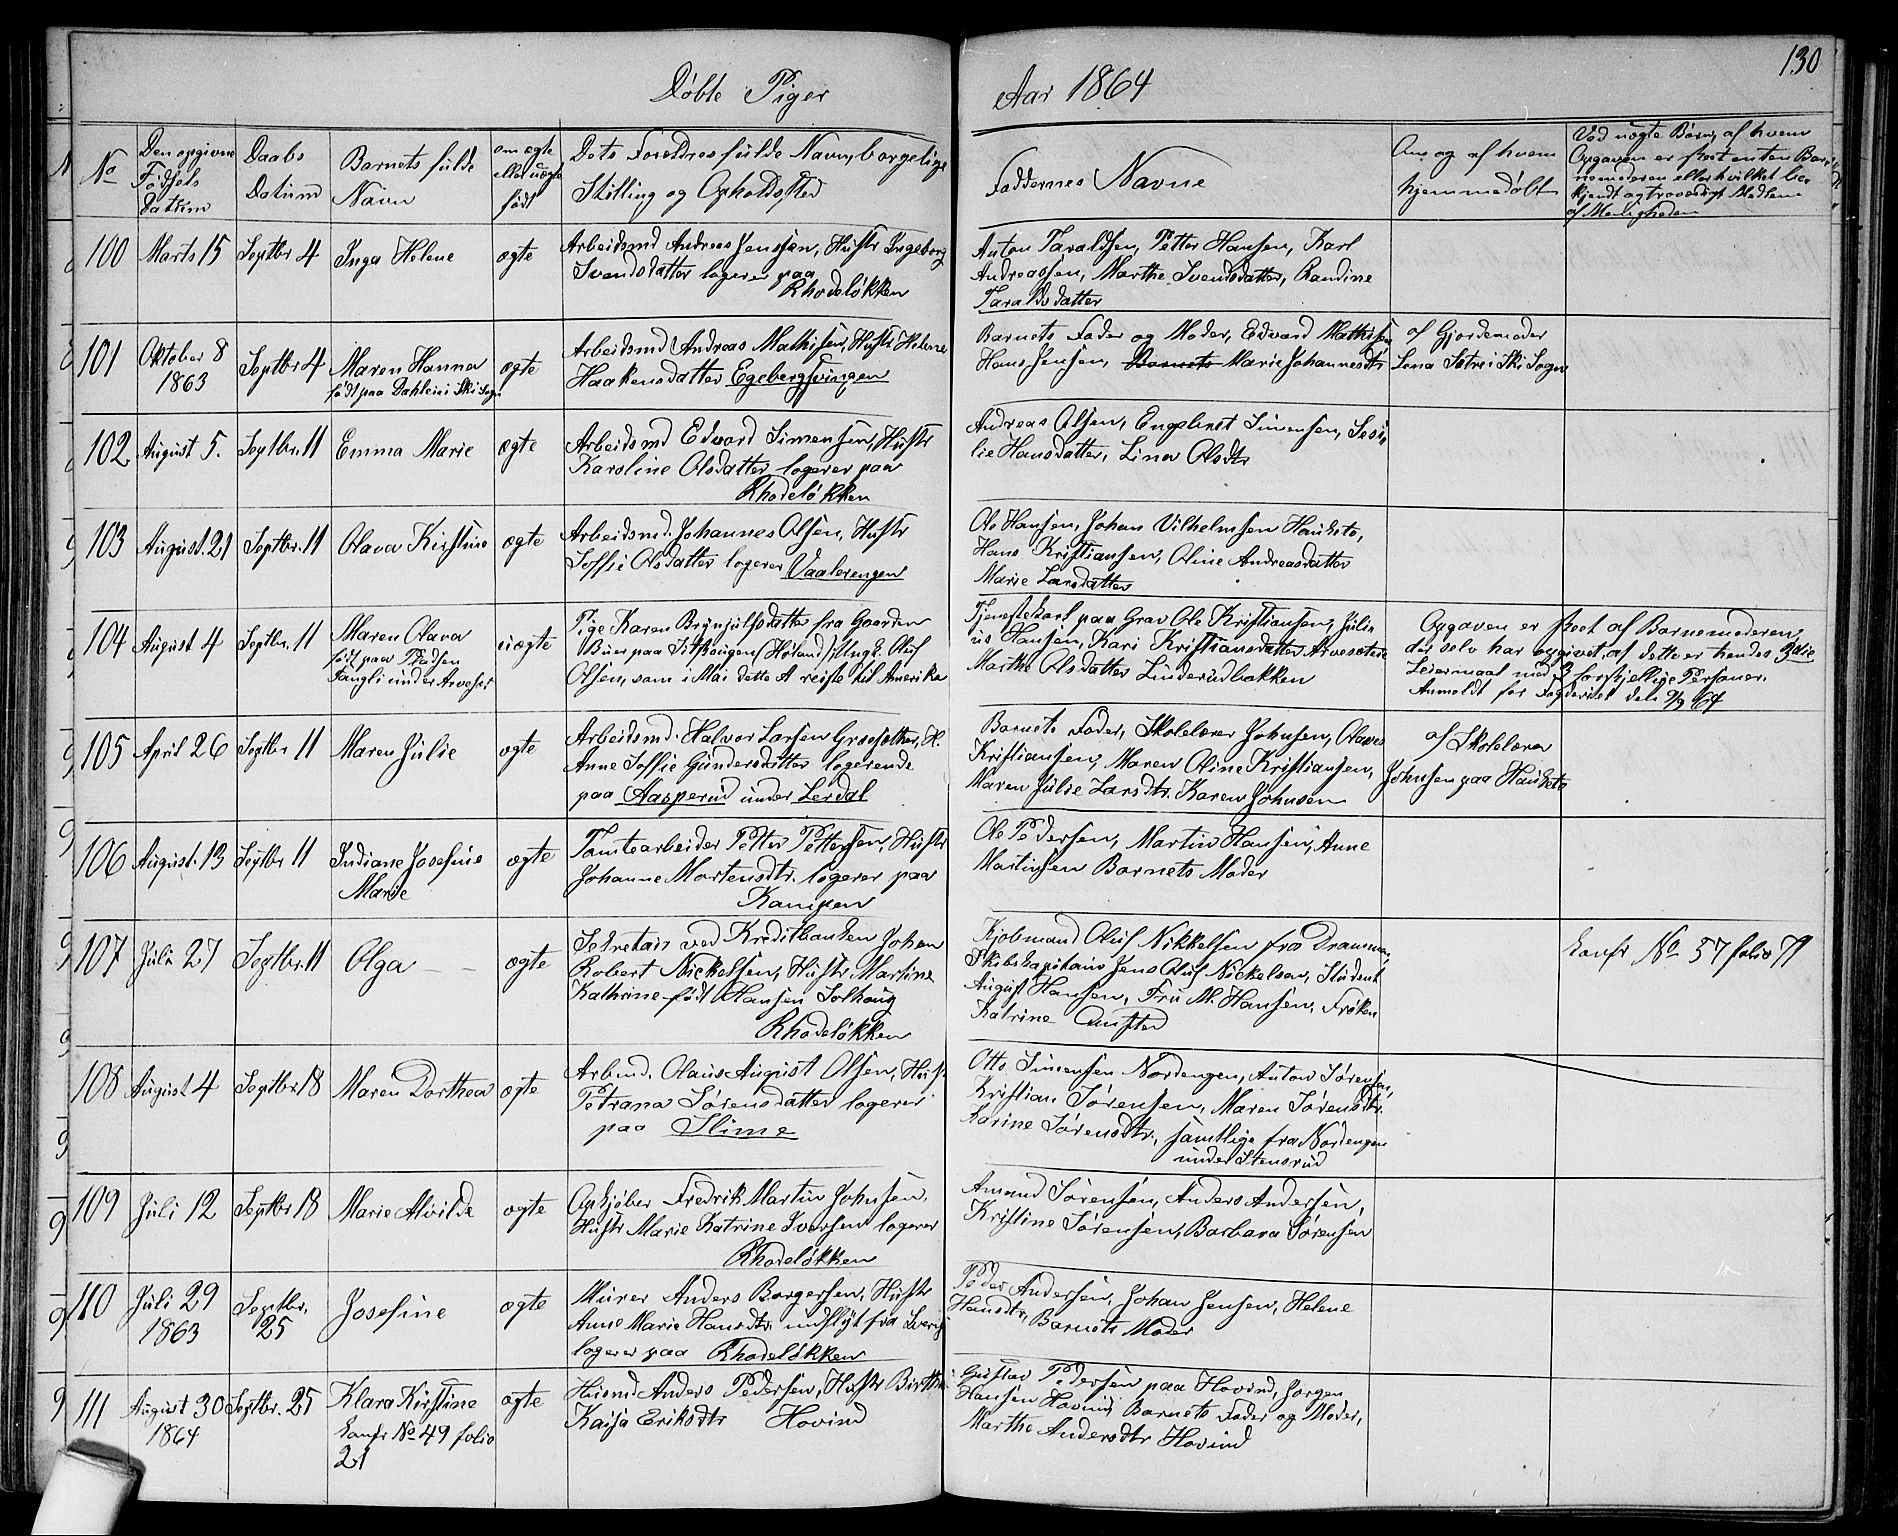 130
Døbte Piger
Aar 1864
No
Den opgivne
Fødsels
Datum
Daabs
Datum
Barnets fulde
Navn
om ægte
eller uægte
født
Dets Foreldres fulde Navn, borgelige
Stilling og Opholdssted
Faddernes Navne
Om og af hvem
hjemmedøbt
Ved uægte Børn, af hvem
Opgaven er skeet enten Bar-
nemoderen eller hvilket be-
kjendt og troværdigt Medlem
af Menigheden
100
Marts 15
Septbr 4
Inga Helene
ægte
Arbeidsmd Andreas Jenssen, Hustr Ingeborg
Svendsdatter logerer paa
Rhodeløkken
Anton Taraldsen, Petter Hansen, Karl
Andreassen, Marthe Svendsdatter, Randine
Taraldsdatter
101
Oktober 8
1863
Septbr 4
Maren Hanna
født paa Dahleie i Ski Sogn
ægte
Arbeidsmd Andreas Mathisen, Hustr Helene
Haakensdatter Egebergsvingen
Barnets Fader og Moder, Edvard Mathisen
Hans Jensen, Barnets Marie Johannesdtr
af Gjordemoder
Lena Sætre i Ski Sogn
102
August 5.
Septbr. 11
Emma Marie
ægte
Arbeidsmd Edvard Simensen, Hustr
Karoline Olsdatter logerer paa
Rhodeløkken
Andreas Olsen, Engebret Simensen, Sesi-
lie Hansdatter, Lina Olsdtr
103
August. 21
Septbr. 11
Olava Kirstine
ægte
Arbeidsmd. Johannes Olsen, Hustr
Soffie Olsdatter logerer Vaalerengen
Ole Hansen, Johan Vilhelmsen Hauketo,
Hans Kristiansen, Oline Andreasdatter
Marie Larsdatter
104
August 4
Septbr. 11
Maren Olava
født paa Pladsen
Fangli under Arveset
uægte
Pige Karen Brynjulfsdatter fra Gaarden
Buer paa (Høland) Ungk. Oluf
Olsen, som i Mai dette A reiste til Amerika
Tjenestekarl paa Grav Ole Kristiansen, Juli-
us Hansen, Kari Kristiansdatter Arvesætere
Marthe Olsdatter Linderudbakken
Opgaven er skeet af Barnemoderen,
der selv har opgivet, at dette er hendes 3die
Leiermaal med 3 forskjellige Personer.
Anmeldt for Fogderiet den 64
105
April 26
Septbr 11
Maren Julie
ægte
Arbeidsmd. Halvor Larsen H.
Anne Soffie Gundersdatter logerende
paa Aasperud under Lerdal
Barnets Fader, Skolelærer Johnsen, Olaves
Kristiansen, Maren Oline Kristiansen,
Maren Julie Larsdtr. Karen Johnsen
af Skolelærer
Johnsen paa Hauketo
106
August. 13
Septbr 11
Indiane Josefine
Marie
ægte
Tomtearbeider Petter Pettersen, Hustr
Johanne Mortensdtr. logerer paa
Kampen
Ole Pedersen, Martin Hansen, Anne
Martinsen Barnets Moder
107
Juli 27
Septbr. 11
Olga
ægte
Sekretair ved Kreditbanken Johan
Robert Nickelsen, Hustr Martine
Kathrine født Hansen Solhaug
Rhodeløkken
Kjøbmand Oluf Nikkelsen fra Drammen,
Skibskapitain Jens Oluf Nickelsen, Student
August Hansen, Fru M. Hansen, Frøken
Katrine
Konfr No 57 folio 79
108
August 4
Septbr 18
Maren Dorthea
ægte
Arbmd. Olaus August Olsen, Hustr
Petrana Sørensdatter logerer
paa Slime
Otto Simensen Nordengen, Anton Sørensen,
Kristian Sørensen, Maren Sørensdtr.
Karine Sørensdtr., samtlige fra Nordengen
under Stensrud
109
Juli 12
Septbr 18
Marie Alvilde
ægte
Opkjøber Fredrik Martin Johnsen,
Hustr Marie Katrine Iversen logerer
Rhodeløkken
Amund Sørensen, Anders Andersen,
Kristine Sørensen, Barbara Sørensen
110
Juli 29
1863
Septbr.
25
Josefine
ægte
Murer Anders Borgersen, Hustr
Anne Marie Hansdtr. indflyt fra Sverig
logerer paa Rhodeløkken
Peder Andersen, Johan Jensen, Helene
Hansdtr, Barnets Moder
111
August 30
1864
Septbr. 25
Klara Kirstine
Konfr No 49 folio
21
ægte
Husmd Anders Pedersen, Hustr Birthe
Kaisa Eriksdtr Hovind
Gustav Pedersen paa Hovind, Jørgen
Hansen Hovind Barnets Fader og Moder,
Marthe Andersdtr Hovind